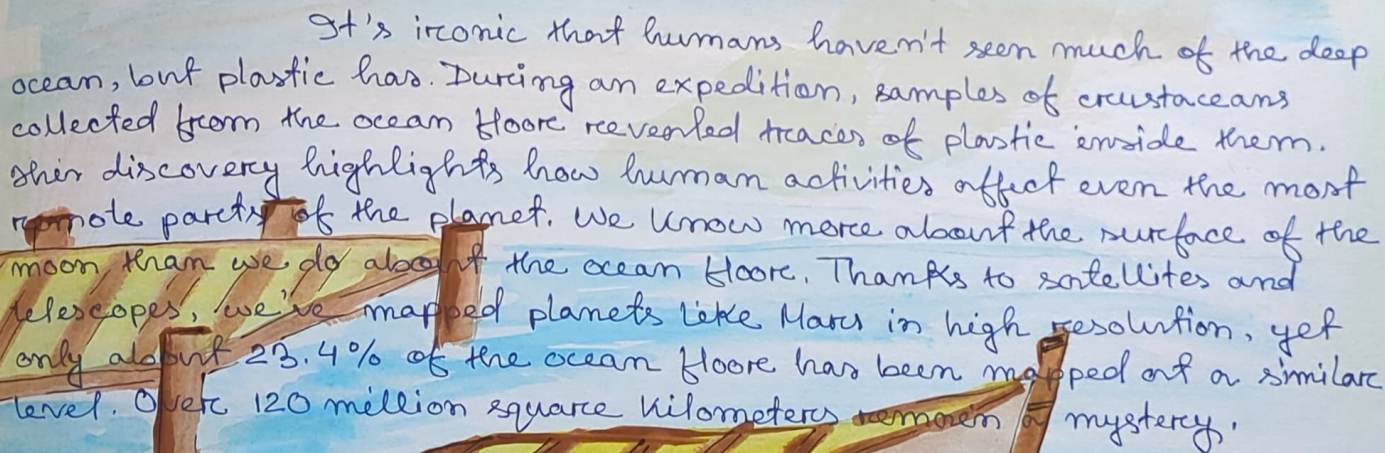 It's ironic that humans haven't seen much of the deep
ocean, but plastic has. During an expedition, samples of crustaceans
collected from the ocean floor revealed traces of plastic inside them.
This discovery highlights how human activities affect even the most
remote parts of the planet. We know more about the surface of the
moon than we do about the ocean floor. Thanks to satellites and
telescopes, we've mapped planets like Mars in high resolution, yet
only about 23.4% of the ocean floor has been mapped at a similar
level. Over 120 million square kilometers remain a mystery.